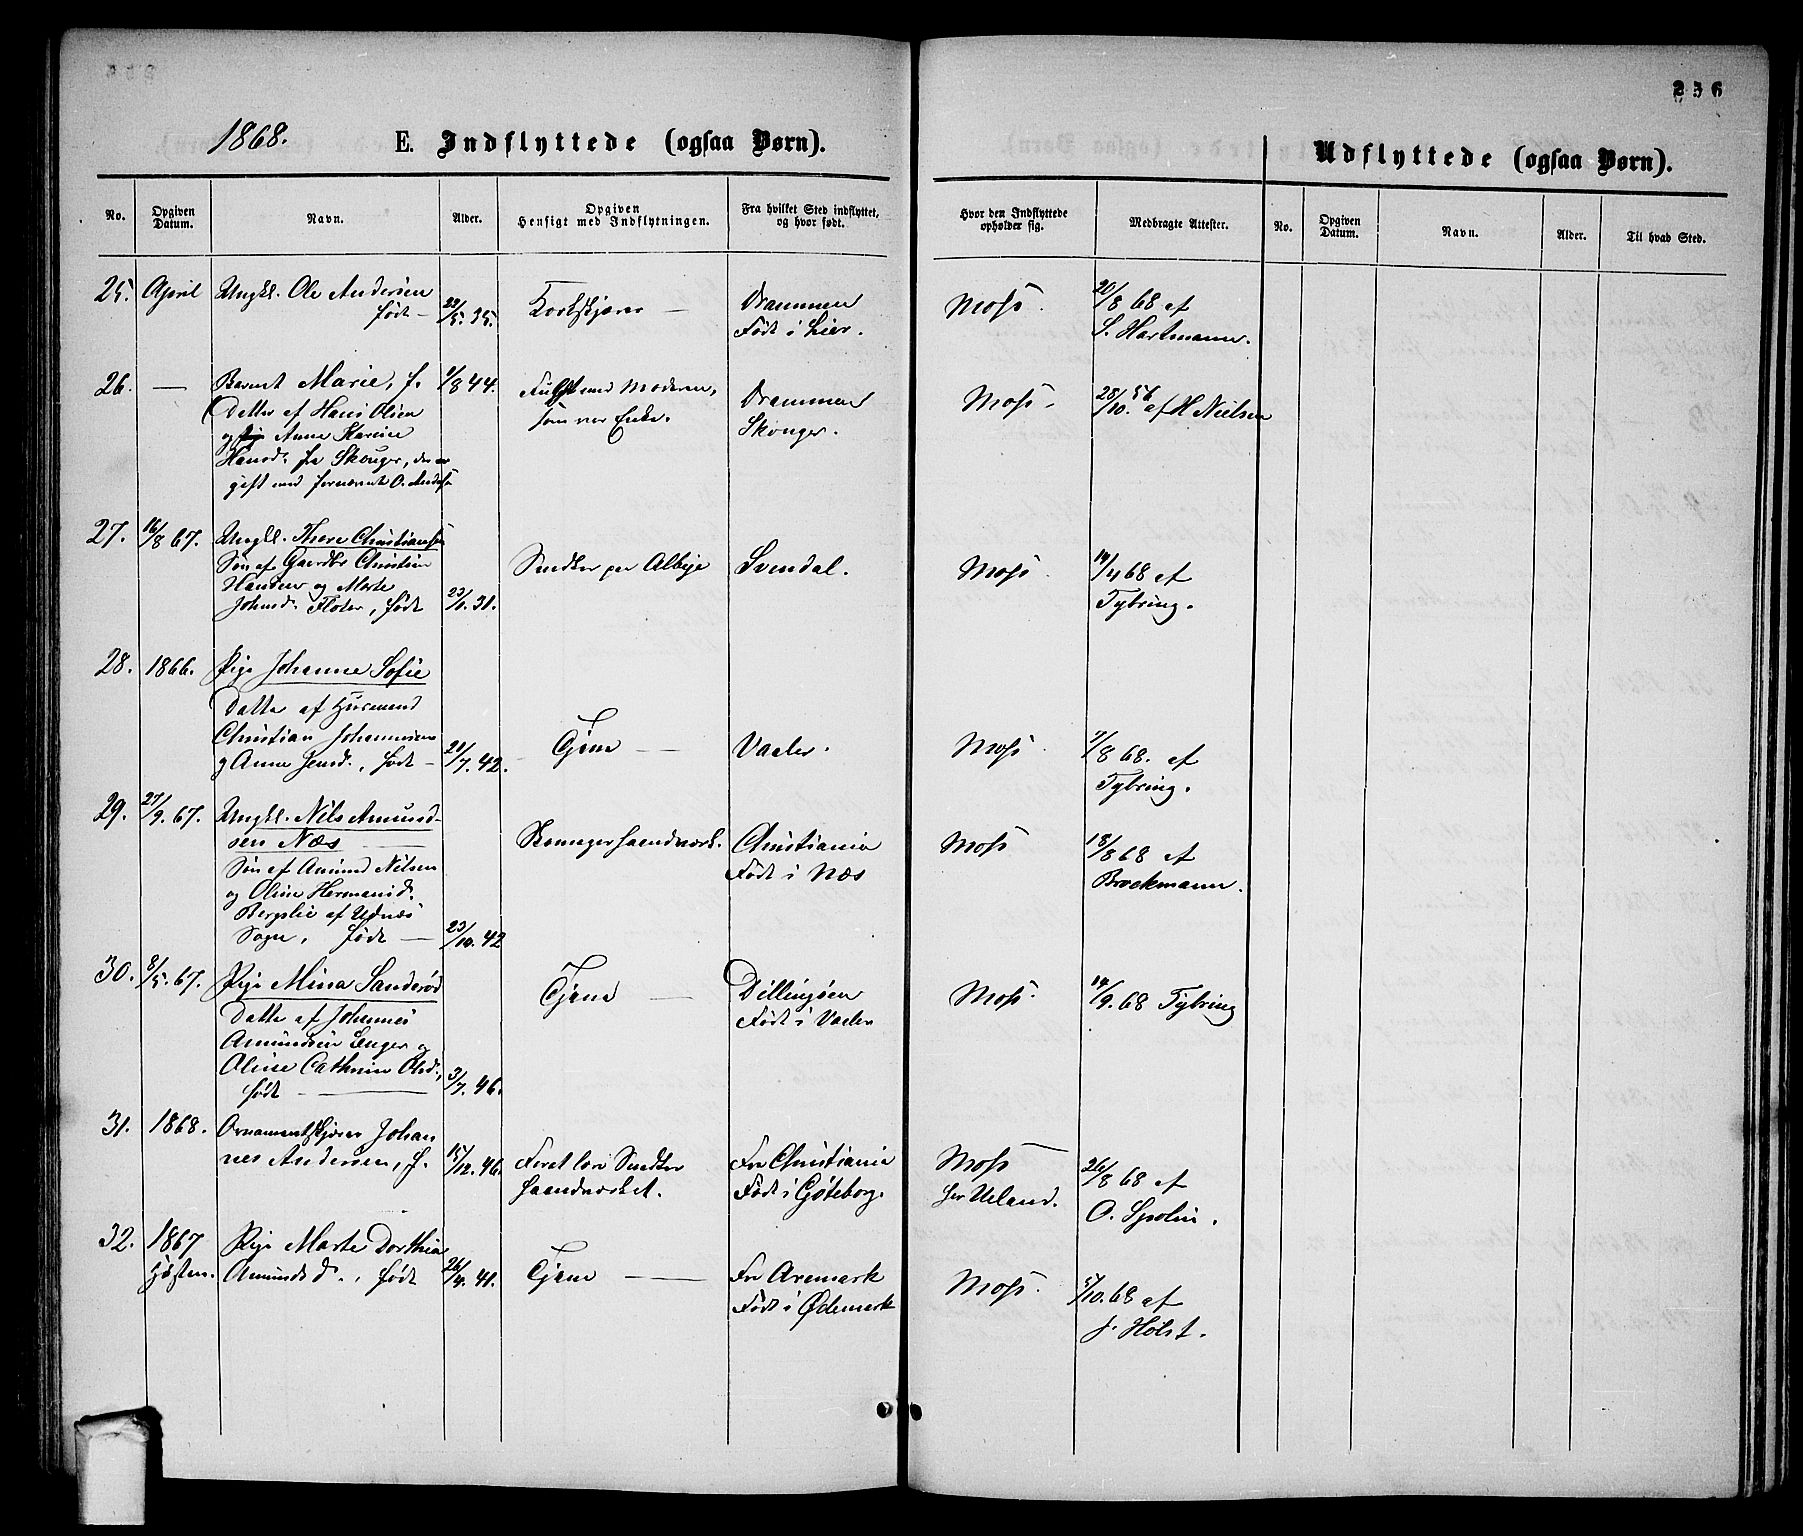 236
1868.
E. Indflyttede (ogsaa Børn).
Udflyttede (ogsaa Børn).
No.
Opgiven Datum.
Navn.
Alder.
Opgiven Hensigt med Indflytningen.
Fra hvilket Sted indflyttet, og hvor født.
Hvor den Indflyttede opholder sig.
Medbragte Attester.
No.
Opgiven Datum.
Navn.
Alder.
Til hvad Sted.
25. April Ungkl. Ole Andersen
født — 22/5. 35.
Korkskjærer —
Drammen
Født i Lier.
Moss.
20/8 68 af
S. Hartmann.
26. — Barnet Marie, f. 1/8 44.
Datter af Hans Olsen
og Anne Karine
Hansd. fra Skouger, der er
gift med fornævnte O. Anders.
Fulgt med Moderen,
som var Enke.
Drammen
Skouger.
Moss.
28/10. 56 af H Nielsen
27. 16/8 67. Ungkl. Thore Christiansen
Søn af Gaardbr Christian
Hansen og Marte
Johnsd. Floter, født 23/1. 31.
Snedker paa Albye
Svendal.
Moss.
14/4 68 af
Tybring.
28. 1866. Pige Johanne Sofie
Datter af Husmand
Christian Johannesen
og Anne Jensd., født — 21/7. 42.
Tjene —
Vaaler.
Moss.
7/8 68. af
Tybring.
29. 27/9. 67. Ungkl. Nils Amund-
sen Næs —
Søn af Amund Nilsen
og Oline Hermansd.
Bergslie af Udnæs
Sogn, født — 23/10. 42
haandværk.
Christiania
Født i Næs
Moss
18/8 68 af
Brockmann.
30. 8/5. 67. Pige Mina Sanderød
Datter af Johannes
Amundsen Enger og
Oline Cathrine Olsd.,
født — 3/7. 46.
Tjene —
Dillingøen
Født i Vaaler
Moss.
14/9. 68 Tybring
31. 1868. Ornamentskjærer Johan
nes Andersen, f. 15/12. 46.
For at lære Snedker
haandværket.
Fra Christiania
Født i Gøteborg.
Moss —
hos Ueland.
26/8 68 af
O. Spolin.
32. 1867 Pige Marte Dorthea
Høsten. Amundsd., født 26/4. 41.
Tjene —
Fra Aremark
Født i Ødemark
Moss.
5/10. 68 af
J. Holst.